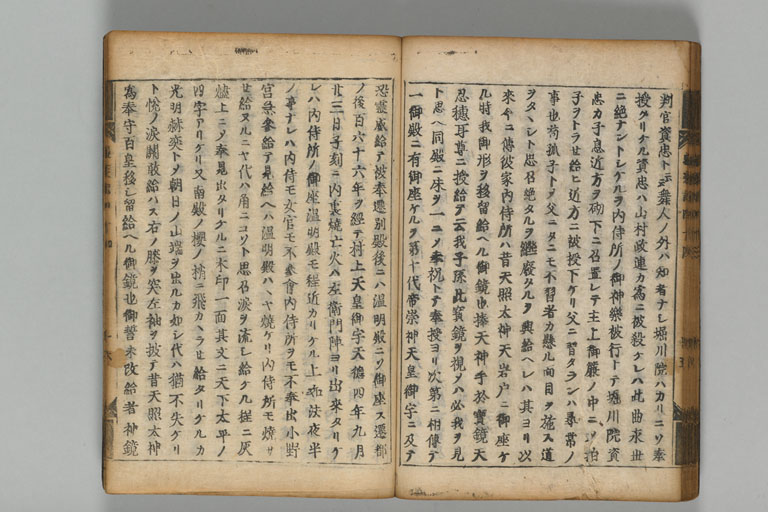 判官資忠ト云舞人ノ外ハ知者ナレ堀川院ハカリニソ奉
授クリケル資忠ハ山村政連カ為ニ被殺ケレハ此曲永世
ニ絶ナントシケルヲ内侍所ノ御神楽被行トテ堀川院資
忠カ子息近方ヲ砌下ニ召置レテ主上御簾ノ中ニソ拍
子ヲトラせ給ヒ近方ニ被授下ケリ父ニ習タランハ尋常ノ
事也苟孤子トテ父ニタニモ不習者カ懸ル向目ヲ施ス道
ヲタヽシト思召絶タルヲ継廢タルヲ興給ヘレハ其ヨリ次
来今ニ傳彼家内侍所ハ昔天照太神天岩戸ニ御座ケ
ル時我御形ヲ移留給ヘル御鏡也捧天神手於寶鏡天
忍穂耳尊ニ授給テ云我子孫此寶鏡ヲ視メハ必我ヲ見
ト思ヘ同殿ニ床ヲ一ニノ奉祝トテ奉授ヨリ次第ニ相傳テ
一御殿ニ有御座ケルヲ第十代帝崇神天皇御宇ニ及テ
恐靈威給テ被奉遷別殿後ニハ温明殿ニソ御座ス遷都
ノ後百六十六年ヲ經テ村上天皇御宇天徳四年九月
廿三日子刻ニ内裏焼亡火ハ左衛門陣ヨリ出来タリケ
レハ内侍所ノ御座温明殿モ程近カリケル上如法夜半
ノ事ナレハ内侍モ女官モ不參會内侍所ヲモ不奉出小野
宮急參給テ見給ヘハ温明殿ハヤ焼ケリ内侍所モ焼サ
せ給ヌルニヤ代ハ角ニコソト思召涙ヲ流レ給ケル程ニ灰
燼上ニノ奉見出タリケルニ木印一面其文ニ天下太平ノ
四字アリケリ又南殿ノ櫻ノ梢ニ飛カヽラせ給タリケルカ
光明赫奕トノ朝日ノ山端ヲ出ルカ如シ代ハ猶不失ケリ
ト悦ノ涙關敢給ハス右ノ膝ヲ突左袖ヲ披テ昔天照太神
為奉守百皇移レ留給ヘル御鏡也御誓未改給者神鏡